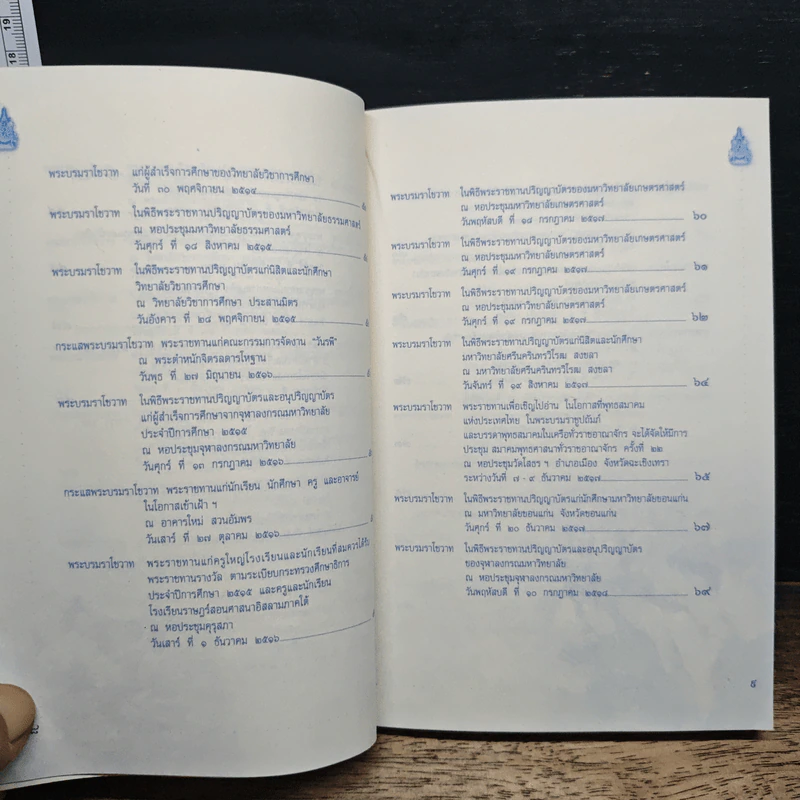 19
18
พระบรมราโชวาท แก่ผู้สำเร็จการศึกษาของวิทยาลัยวิชาการศึกษา
วันที่ ๓๐ พฤศจิกายน ๒๕๑๔
พระบรมราโชวาท ในพิธีพระราชทานปริญญาบัตรของมหาวิทยาลัยธรรมศาสตร์
ณ หอประชุมมหาวิทยาลัยธรรมศาสตร์
วันศุกร์ ที่ ๑๘ สิงหาคม ๒๕๑๕
พระบรมราโชวาท ในพิธีพระราชทานปริญญาบัตรแก่นิสิตและนักศึกษา
วิทยาลัยวิชาการศึกษา
ณ วิทยาลัยวิชาการศึกษา ประสานมิตร
วันอังคาร ที่ ๒๘ พฤศจิกายน ๒๕๑๕
กระแสพระบรมราโชวาท พระราชทานแก่คณะกรรมการจัดงาน "วันรพี"
ณ พระตำหนักจิตรลดารโหฐาน
วันพุธ ที่ ๒๗ มิถุนายน ๒๕๑๖
พระบรมราโชวาท ในพิธีพระราชทานปริญญาบัตรและอนุปริญญาบัตร
แก่ผู้สำเร็จการศึกษาจากจุฬาลงกรณมหาวิทยาลัย
ประจำปีการศึกษา ๒๕๑๕
ณ หอประชุมจุฬาลงกรณมหาวิทยาลัย
วันศุกร์ ที่ ๑๓ กรกฎาคม ๒๕๑๖
กระแสพระบรมราโชวาท พระราชทานแก่นักเรียน นักศึกษา ครู และอาจารย์
ในโอกาสเข้าเฝ้า ฯ
ณ อาคารใหม่ สวนอัมพร
วันเสาร์ ที่ ๒๗ ตุลาคม ๒๕๑๖
พระบรมราโชวาท พระราชทานแก่ครูใหญ่โรงเรียนและนักเรียนที่สมควรได้รับ
พระราชทานรางวัล ตามระเบียบกระทรวงศึกษาธิการ
ประจำปีการศึกษา ๒๕๑๕ และครูและนักเรียน
โรงเรียนราษฎร์สอนศาสนาอิสลามภาคใต้
ณ หอประชุมคุรุสภา
วันเสาร์ ที่ ๑ ธันวาคม ๒๕๑๖
พระบรมราโชวาท ในพิธีพระราชทานปริญญาบัตรของมหาวิทยาลัยเกษตรศาสตร์
ณ หอประชุมมหาวิทยาลัยเกษตรศาสตร์
วันพฤหัสบดี ที่ ๑๘ กรกฎาคม ๒๕๑๗ ๖๐
พระบรมราโชวาท ในพิธีพระราชทานปริญญาบัตรของมหาวิทยาลัยเกษตรศาสตร์
ณ หอประชุมมหาวิทยาลัยเกษตรศาสตร์
วันศุกร์ ที่ ๑๙ กรกฎาคม ๒๕๑๗ ๖๑
พระบรมราโชวาท ในพิธีพระราชทานปริญญาบัตรของมหาวิทยาลัยเกษตรศาสตร์
ณ หอประชุมมหาวิทยาลัยเกษตรศาสตร์
วันศุกร์ ที่ ๑๙ กรกฎาคม ๒๕๑๗ ๖๒
พระบรมราโชวาท ในพิธีพระราชทานปริญญาบัตรแก่นิสิตและนักศึกษา
มหาวิทยาลัยศรีนครินทรวิโรฒ สงขลา
ณ มหาวิทยาลัยศรีนครินทรวิโรฒ สงขลา
วันจันทร์ ที่ ๑๙ สิงหาคม ๒๕๑๗ ๖๔
พระบรมราโชวาท พระราชทานเพื่อเชิญไปอ่าน ในโอกาสที่พุทธสมาคม
แห่งประเทศไทย ในพระบรมราชูปถัมภ์
และบรรดาพุทธสมาคมในเครือทั่วราชอาณาจักร จะได้จัดให้มีการ
ประชุม สมาคมพุทธศาสนาทั่วราชอาณาจักร ครั้งที่ ๒๒
ณ หอประชุมวัดโสธร ฯ อำเภอเมือง จังหวัดฉะเชิงเทรา
ระหว่างวันที่ ๗ - ๙ ธันวาคม ๒๕๑๗ ๖๕
พระบรมราโชวาท ในพิธีพระราชทานปริญญาบัตรแก่นักศึกษามหาวิทยาลัยขอนแก่น
ณ มหาวิทยาลัยขอนแก่น จังหวัดขอนแก่น
วันศุกร์ ที่ ๒๐ ธันวาคม ๒๕๑๗ ๖๗
พระบรมราโชวาท ในพิธีพระราชทานปริญญาบัตรและอนุปริญญาบัตร
ของจุฬาลงกรณมหาวิทยาลัย
ณ หอประชุมจุฬาลงกรณมหาวิทยาลัย
วันพฤหัสบดี ที่ ๑๐ กรกฎาคม ๒๕๑๘ ๖๙